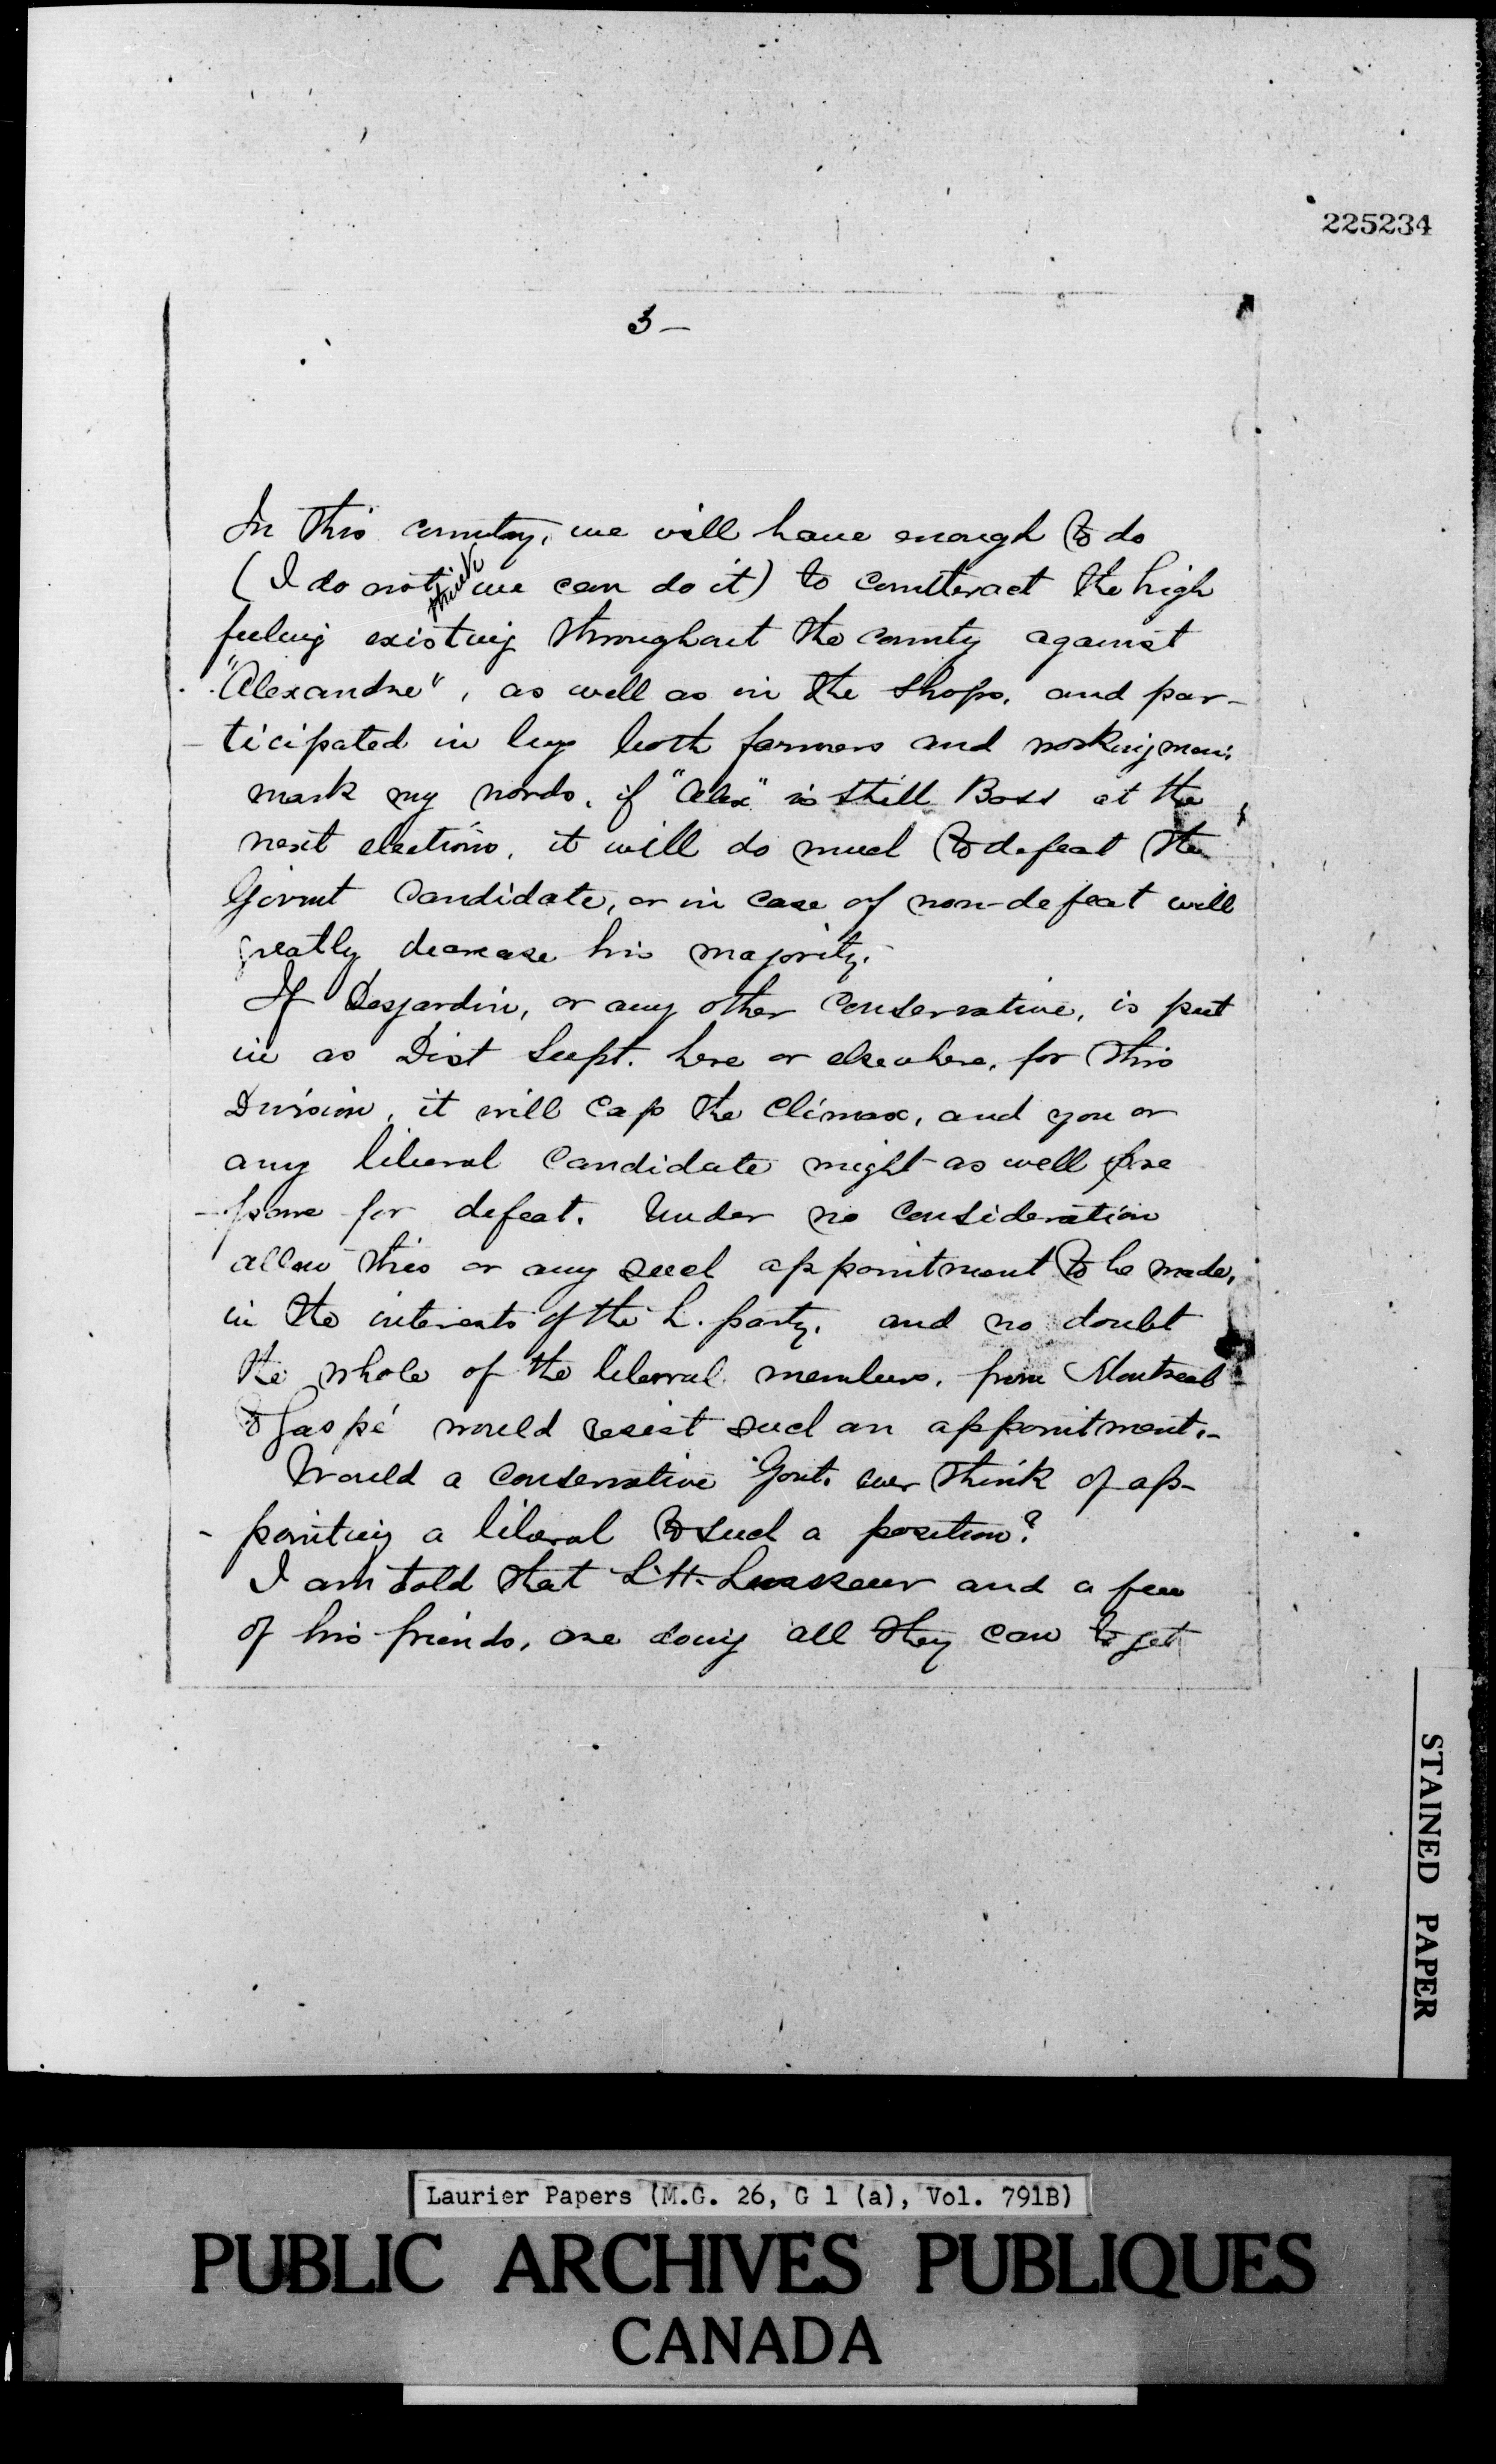 225234
3 —
In this country, we will have enough to do
(I do not think we can do it) to counteract the high
feeling existing throughout the county against
"Alexandre", as well as in the shops, and par-
ticipated in by both farmers and workingmen.
mark my words, if "Alex" is still Boss at the
next elections, it will do much to defeat the
Govmt Candidate, or in case of non-defeat will
greatly decrease his majority.
If Desjardin, or any other Conservative, is put
in as Dist Supt. here or elsewhere, for this
Division, it will cap the climax, and you or
any liberal Candidate might as well pre
-pare for defeat. Under no consideration
allow this or any such appointment to be made,
in the interests of the L. party, and no doubt
the whole of the liberal members, from Montreal
to Gaspé would resist such an appointment.-
Would a conservative Govt. ever think of ap-
- pointing a liberal to such a position?
I am told that L. H. and a few
of his friends, are doing all they can to get
STAINED PAPER
Laurier Papers (M.G. 26, G 1 (a), Vol. 791B)
PUBLIC ARCHIVES PUBLIQUES
CANADA